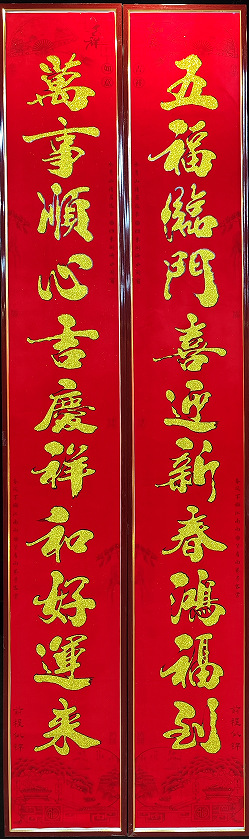 五福臨門喜迎新春鴻福到
萬事順心吉慶祥和好運来